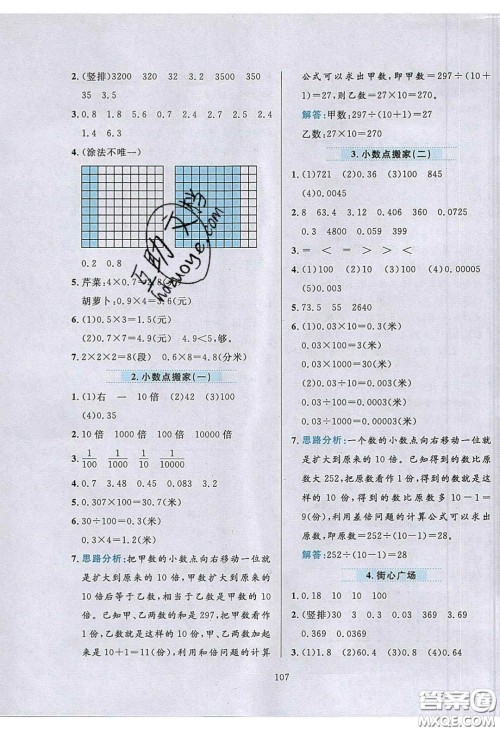 2. (竖排)3200 320 32 3.2 3500 350
35 3.5
3. 0.8 1.8 5.6 0.6 2.7 1.2 2.4 1.4
4. (涂法不唯一)
0.2 0.8
5. 芹菜:4×0.7=2.8(元)
胡萝卜:0.9×4=3.6(元)
6. (1)0.5×3=1.5(元)
(2)0.7×7=4.9(元) 4.9<5,够。
7. 2×2×2=8(段) 0.6×8=4.8(分米)
2. 小数点搬家(一)
1. (1)右 一 10倍 (2)42 (3)100
(4)0.35
2. 10倍 1000倍 100倍 10倍
3. 1/100 1/1000 1/10 1/100
4. 0.73 4.8 0.483 0.048
5. 0.307×100=30.7(米)
6. 30÷100=0.3(米)
0.3×4=1.2(米)
7. 思路分析:把甲数的小数点向右移动一位就
是扩大到原来的10倍,即甲数扩大到原来的
10倍后等于乙数,相当于乙数是甲数的10
倍。已知甲、乙两数的和是297,把甲数看作
1份,乙数就是这样的10份,甲、乙两数加起来
就是10+1=11(份),利用和倍问题的计算
公式可以求出甲数,即甲数=297÷(10+
1)=27,则乙数=27×10=270。
解答:甲数:297÷(10+1)=27
乙数:27×10=270
3. 小数点搬家(二)
1. (1)721 (2)0.36 (3)100 845
(4)0.0045
2. 8 63.4 3.12 360 0.406 0.0725
9.07 0.0348
3. = < = > < >
4. (1)100 (2)0.34 (3)1000
(4)0.032
5. 73.5 55 2640
6. (1)0.03×10=0.3(米)
0.03×100=3(米)
0.03×1000=30(米)
(2)0.03÷10=0.003(米)
0.03÷100=0.0003(米)
0.03÷1000=0.00003(米)
7. 思路分析:一个数的小数点向右移动一位就
是扩大到原来的10倍。已知得到的数比原
数大252,把原数看作1份,得到的数就是这
样的10份,得到的数比原数多10-1=
9(份),利用差倍问题的计算公式可以求出
原数,即原数=252÷(10-1)=28。
解答:252÷(10-1)=28
4. 街心广场
1. 0.18 10 100
2. (竖排)30 3 0.3 0.03 369 3.69
0.369 0.0369
3. (1)1.8 (2)0.84 (3)0.09 (4)0.64
107
互助文档
huzuoye.com
答案圈
MXQE.COM